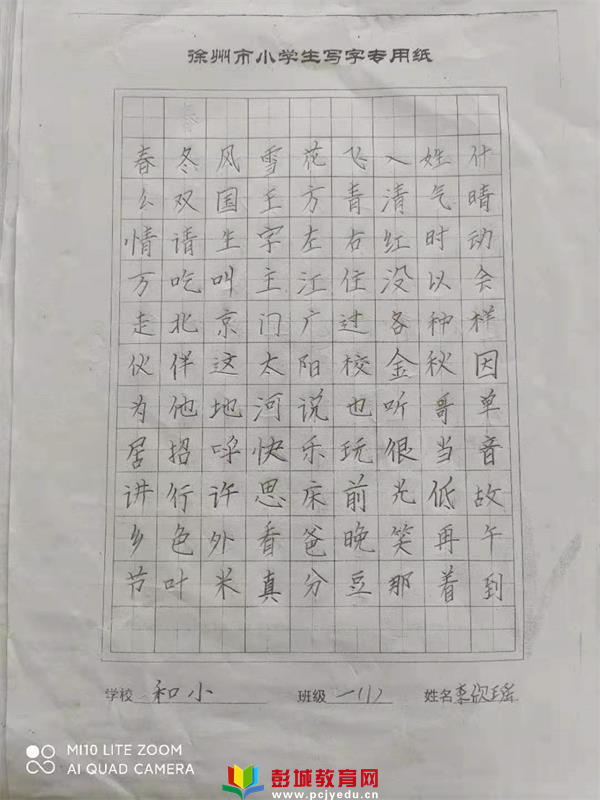 徐州市小学生写字专用纸
春冬风雪花飞入姓什
么双国王方青清气晴
情请生字左右红时动
万吃叫主江住没以会
走北京门广过各种样
伙伴这太阳校金秋因
为他地河说也听哥单
居招呼快乐玩很当音
讲行许思床前光低故
乡色外看爸晚笑再午
节叶米真分豆那着到
学校 和小 班级 一(1) 姓名 李欣瑶
MI 10 LITE ZOOM
AI QUAD CAMERA
彭城教育网
www.pcjyedu.cn